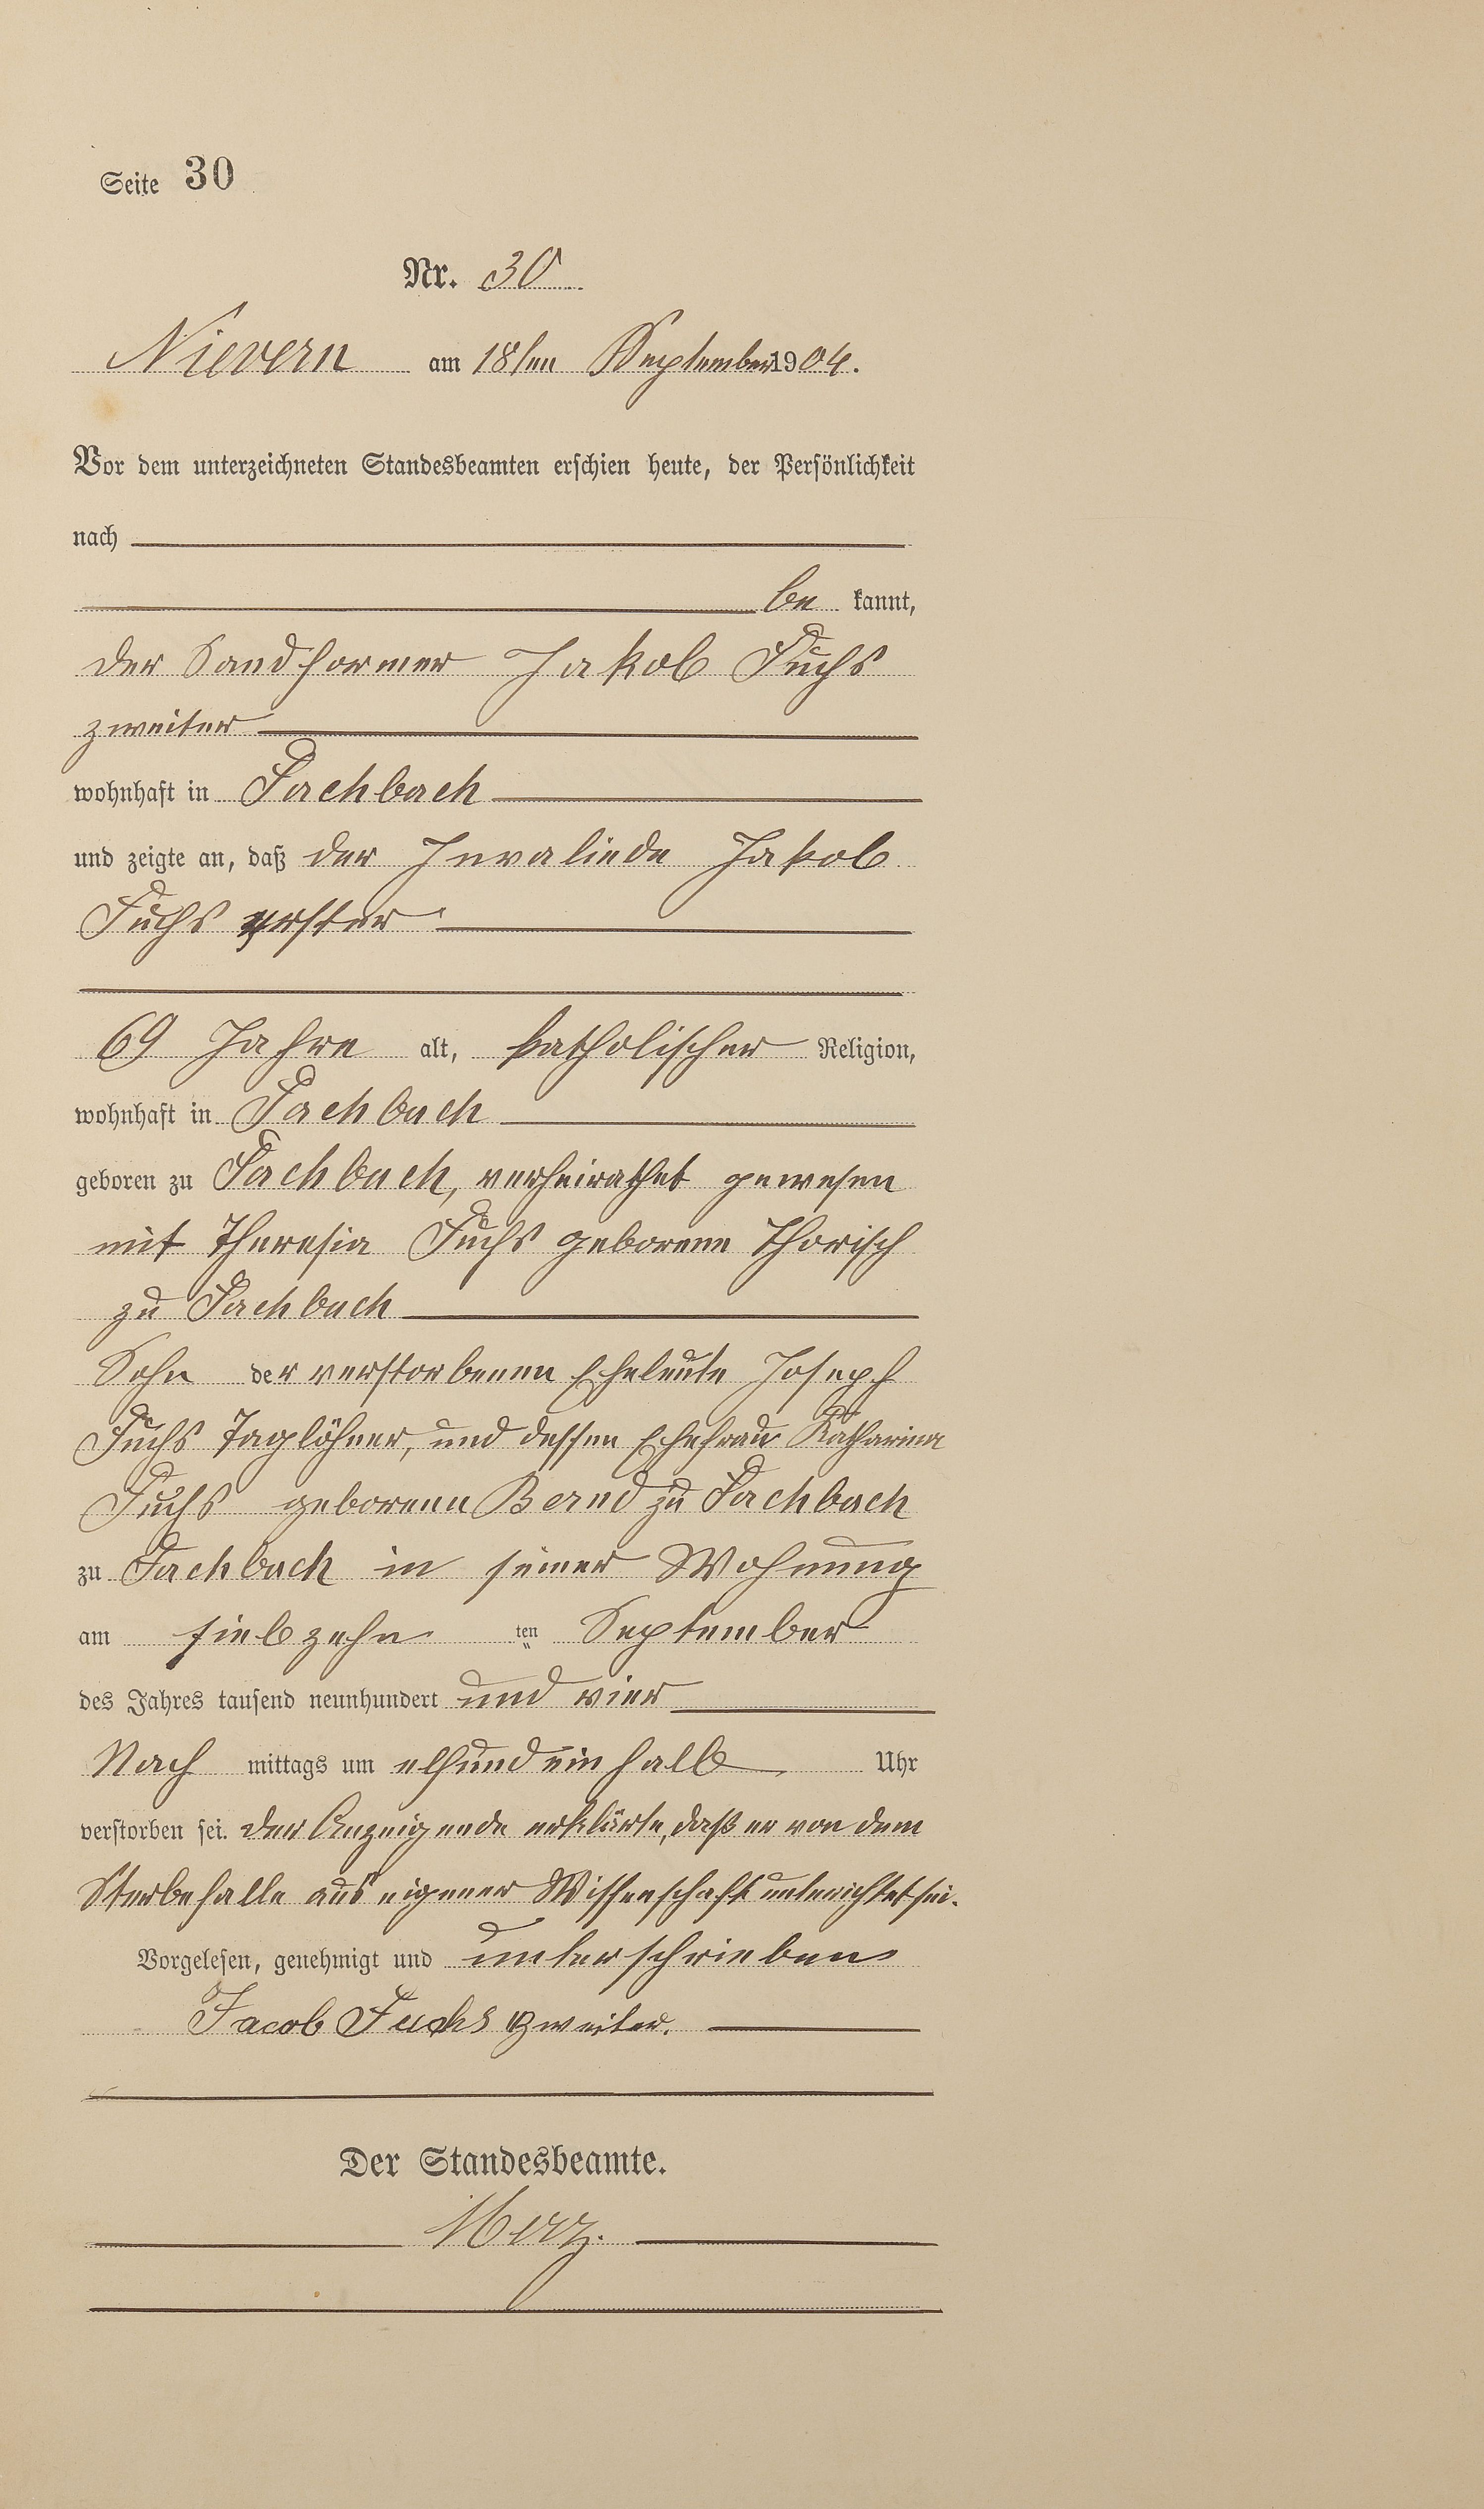 Seite 30
Nr. 30
Nievern am 18ten September 1904.
Vor dem unterzeichneten Standesbeamten erschien heute, der Persönlichkeit
nach
be kannt,
der Sandformer Jakob Fuchs
zweiter
wohnhaft in Fachbach
und zeigte an, daß der Invaliede Jakob
Fuchs erster
69 Jahre alt, katholischer Religion,
wohnhaft in Fachbach
geboren zu Fachbach, verheirathet gewesen
mit Theresia Fuchs geborene Thorisch
zu Fachbach
Sohn der verstorbenen Eheleute Joseph
Fuchs Taglöhner, und dessen Ehefrau Katharina
Fuchs geborenen Bernd zu Fachbach
zu Fachbach in seiner Wohnung
am siebzehn ten September
des Jahres tausend neunhundert und vier
Nach mittags um elfundeinhalb Uhr
verstorben sei. Der Anzeigende erklärte, daß er von dem
Sterbefalle aus eigener Wissenschaft unterichtet sei.
Vorgelesen, genehmigt und unterschrieben
Jacob Fuchs zweiter.
Der Standesbeamte.
Merz.